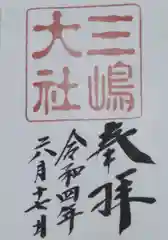 三嶋
大社
奉拝
令和四年
六月十七日